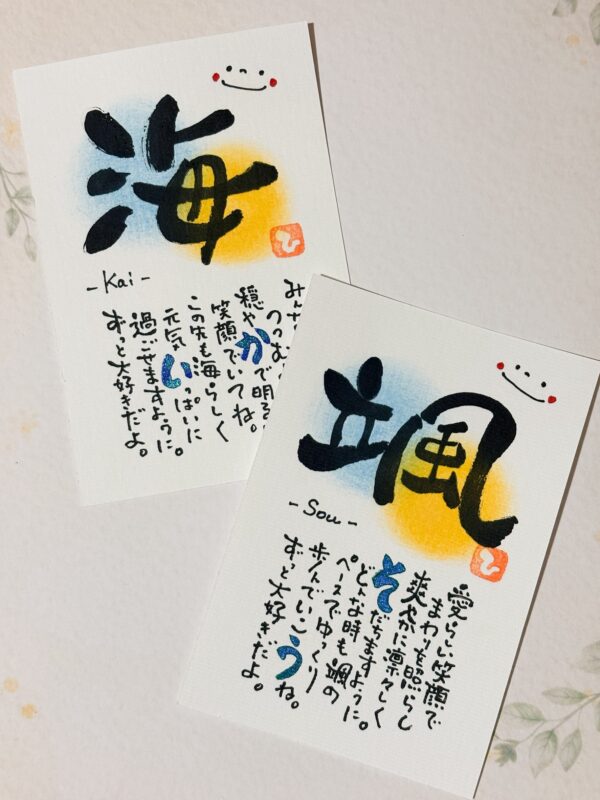 海
-Kai-
みんな
つつむ
穏やかで明る
笑顔でいてね。
この先も海らしく
元気いっぱいに
過ごせますように。
ずっと大好きだよ。
颯
-Sou-
愛らしい笑顔で
まわりを照らし
爽やかに凛々しく
そだちますように。
どんな時も颯の
ペースでゆっくり
歩んでいこうね。
ずっと大好きだよ。